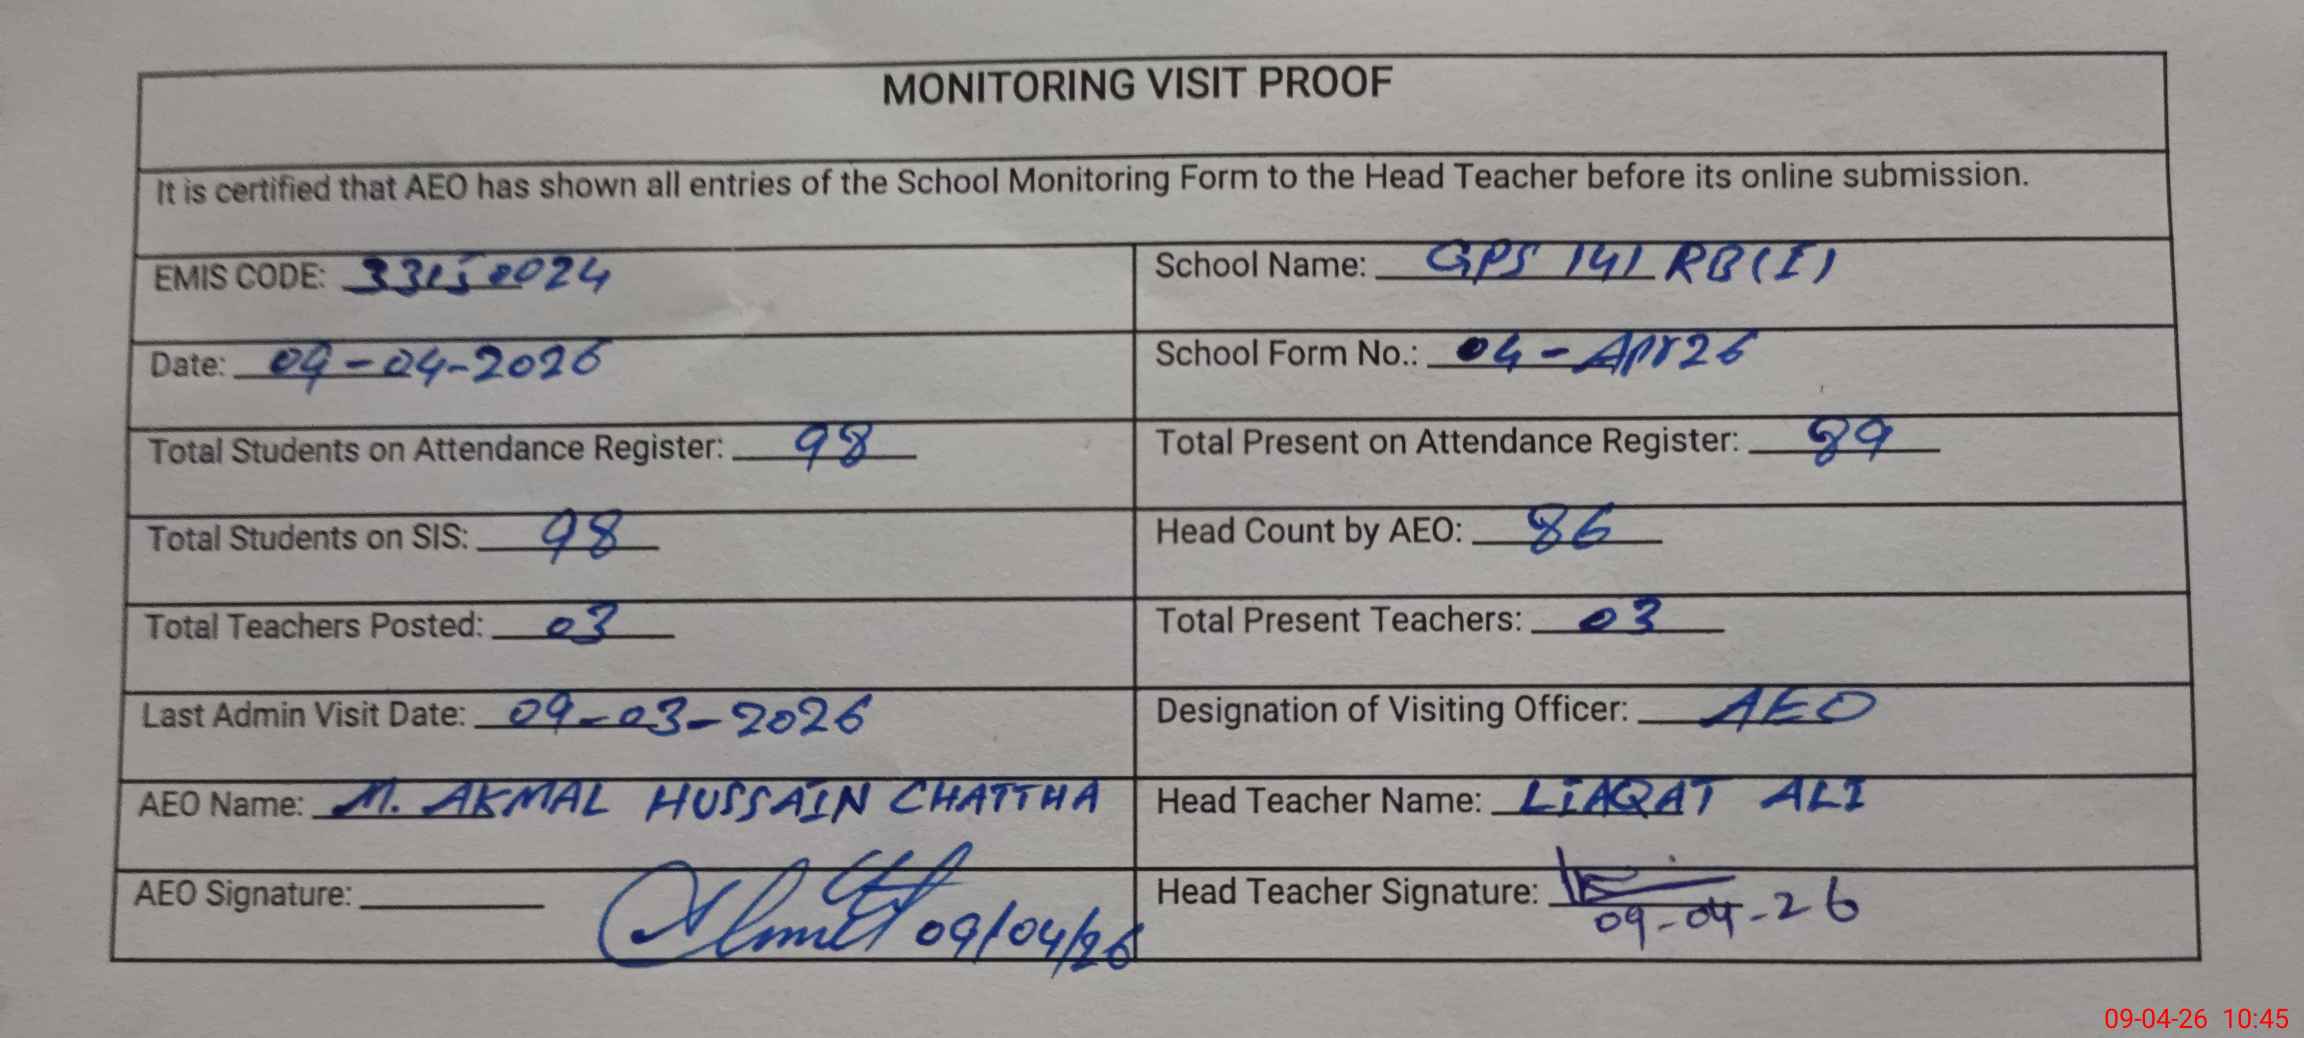 MONITORING VISIT PROOF
It is certified that AEO has shown all entries of the School Monitoring Form to the Head Teacher before its online submission.
EMIS CODE: 33150024 School Name: GPS 141 RB(I)
Date: 09-04-2026 School Form No.: 04-Apr 26
Total Students on Attendance Register: 98 Total Present on Attendance Register: 89
Total Students on SIS: 98 Head Count by AEO: 86
Total Teachers Posted: 03 Total Present Teachers: 03
Last Admin Visit Date: 09-03-2026 Designation of Visiting Officer: AEO
AEO Name: M. AKMAL HUSSAIN CHATTHA Head Teacher Name: LIAQAT ALI
AEO Signature: 09/04/26 Head Teacher Signature: 09-04-26
09-04-26 10:45